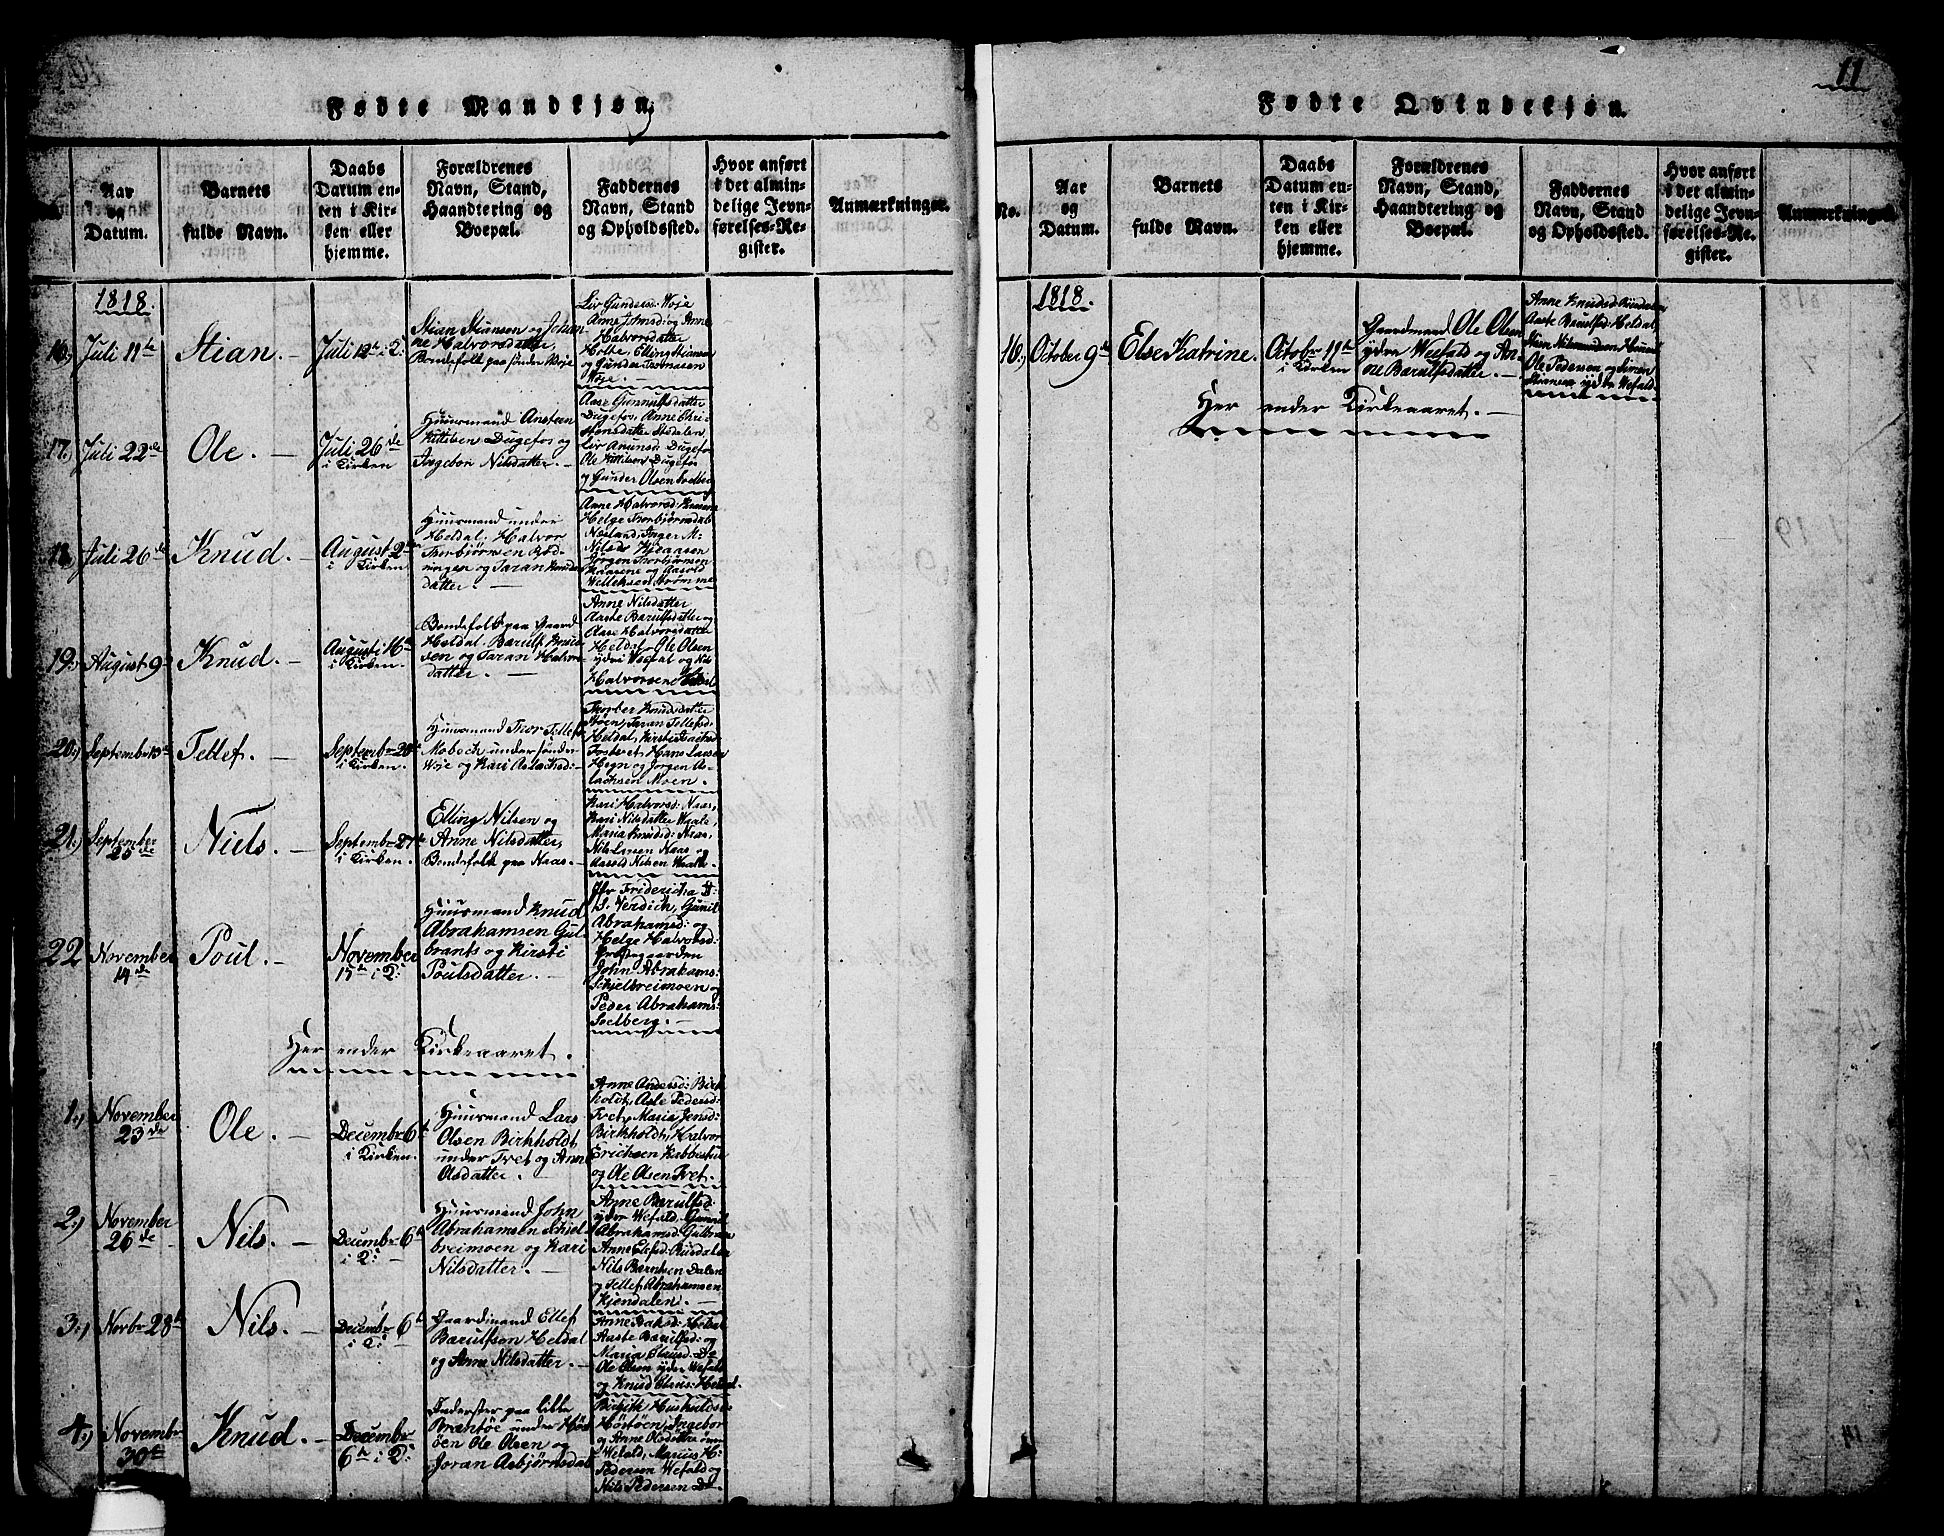 11
Fødte Mandkjøn.
Aar
og
Datum.
Barnets
fulde Navn.
Daabs
Datum en-
ten i Kir-
ken eller
hjemme.
Forældrenes
Navn, Stand,
Haandtering og
Boepæl.
Faddernes
Navn, Stand
og Opholdssted.
Hvor anført
i det almin-
delige Jevn-
førelses-Re-
gister.
Anmærkninger.
1818.
16.) Juli 11te
Stian. —
Juli 12te i D:
Stian Stianson og Johan-
ne Halvorsdatter,
Bondefolk paa sønder Woje
Liv Gundersd: Woje
Anne Johnsd: og Anne
Halvorsdatter
Holte, Elling Stianson
og Gunder
Woje. —
17.) Juli 22de
Ole. —
Juli 26de
i Kirken
Huusmand Anstein
Kittilsen Dugefos og
Ingebor Nilsdatter. —
Aase Gunnulfsdatter
Dugefos, Anne Chri-
stensdatter
Liv Anunsd: Dugefos
Ole Kittilsen Dugefos
og Gunder Olsen
18.) Juli 26de
Knud. —
August 2den
i Kirken.
Huusmand under
Heldal, Halvor
Thorbjørnsen
og Taran Knuds-
datter. —
Anne Halvorsd:
Helge Thorbjørnsdat:
Inger M:
Nilsd:
Jørgen Thorbjørnsen
og Aasold
19.) August 9
Knud. —
August 16te
i Kirken.
Bondefolk paa Gaard
Heldal, Barulf Knud-
sen og Taran Halvors-
datter. —
Anne Nilsdatter
Aaste Barulfsdatter og
Aase Halvorsdatter
Heldal, Ole Olsen
ydre Wefal og Nils
Halvorsen Heldal
20.) September 13
Tellef. —
Septembr 20de
i Kirken.
Huusmand Thor Tellefs:
Moboch under sønder
Woje og Kari Aslachsd:
Thorber Knudsdatter
Støen, Taran Tellefsd:
Heldal, Kirsti
Hans Larsen
Hegn og Jørgen As-
lachsen Moen.
21.) September
25de
Niels. —
Septembr 27de
i Kirken.
Elling Nilsen og
Anne Nilsdatter,
Bondefolk paa Naas. —
Kari Halvorsd: Naas,
Kari Nilsdatter Waale,
Maria Knudsd: Naas,
Nils Naas og
Aasold Nilsen Waale
22 November
14de
Poul. —
November
15te i D:
Huusmand Knud
Abrahamsen Gul-
brants og Kirsti
Poulsdatter. —
Jfr Fridericha
Gunil
Abrahamsd: og
Helge Halvorsd:
Præstegaarden
John Abrahams:
Schjelbreimoen og
Peder Abrahams:
Soelberg. —
Her ender Kirkeaaret.
1.) November
23de
Ole. —
Decembr 6te
i Kirken.
Huusmand Lars
Olsen Birkholdt
under Tvet og Anne
Olsdatter. —
Anne Andersd: Birk-
holdt, Asle Pedersd:
Tvet, Maria Jensd:
Birkholdt, Halvor
Erichsen Kabbestue
og Ole Olsen Tvet.
2.) November
26de
Nils. —
Decembr 6te
i D:
Huusmand John
Abrahamsen Schjel-
breimoen og Kari
Nilsdatter. —
Anne Barulfsd:
ydre Wefald, Gunnil
Abrahamsd: Gulbran
Anne Elefsd:
Nils Barntsen Dalen
og Tellef Abrahamsen
Kjendalen. —
3.) Novbr 28de
Nils. —
Decembr 6te
i D:
Gaardmand Ellef
Barulfson Heldal
og Anne Nilsdatter. —
Anne Isaksd: Heldal
Aaste Barulfsd: og
Maria Clausd: Do
Ole Olsen ydre Wefald
og Knud Claus: Heldal.
4.) November
30te
Knud. —
December
6te i D:
Inderster paa lille
Bræntøe under
Ole Olsen og
Joran Asbjørnsdat:
Birgith
Ingebor
og Anne Olsdattre
Wefald, Marius H:
Pedersen Wefald og
Nils Pedersen Do
Fødte Qvindekjøn.
No.
Aar
og
Datum.
Barnets
fulde Navn.
Daabs
Datum en-
ten i Kir-
ken eller
hjemme.
Forældrenes
Navn, Stand,
Haandtering og
Boepæl.
Faddernes
Navn, Stand
og Opholdssted.
Hvor anført
i det almin-
delige Jevn-
førelses-Re-
gister.
Anmærkninger.
1818.
16.) October 9de
Else Katrine. —
Octobr 11te
i Kirken
Gaardmand Ole Olsen
ydre Weefald og An-
ne Barulfsdatter. —
Anne Knudsd:
Aaste Barulfsd: Heldal,
Ole Pedersen og Simon
ydre Wefald.
Her ender Kirkeaaret. —